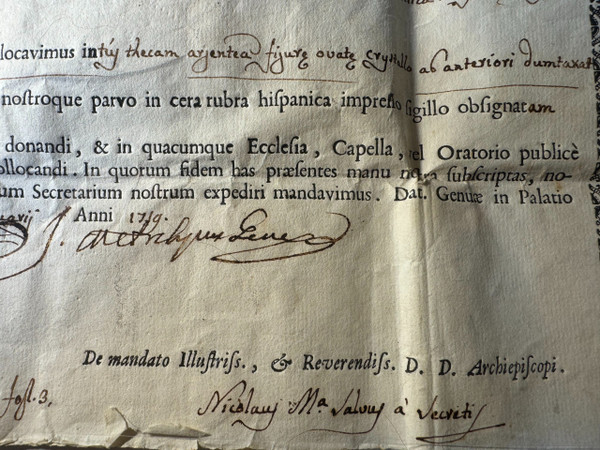 locavimus intùs thecam argenteā figurę ovatę crystallo ab anteriori dumtaxat
noſtroque parvo in cera rubra hiſpanica impreſſo ſigillo obſignatam
donandi, & in quacumque Eccleſia, Capella, vel Oratorio publicè
ollocandi. In quorum fidem has præſentes manu noſtra ſubſcriptas, no-
um Secretarium noſtrum expediri mandavimus. Dat. Genuæ in Palatio
Anni 1719.
J. Archiepus
De mandato Illuſtriſs., & Reverendiſs. D. D. Archiepiſcopi.
fosl. 3,
Nicolaus Mᵃ Salvus à Secretis